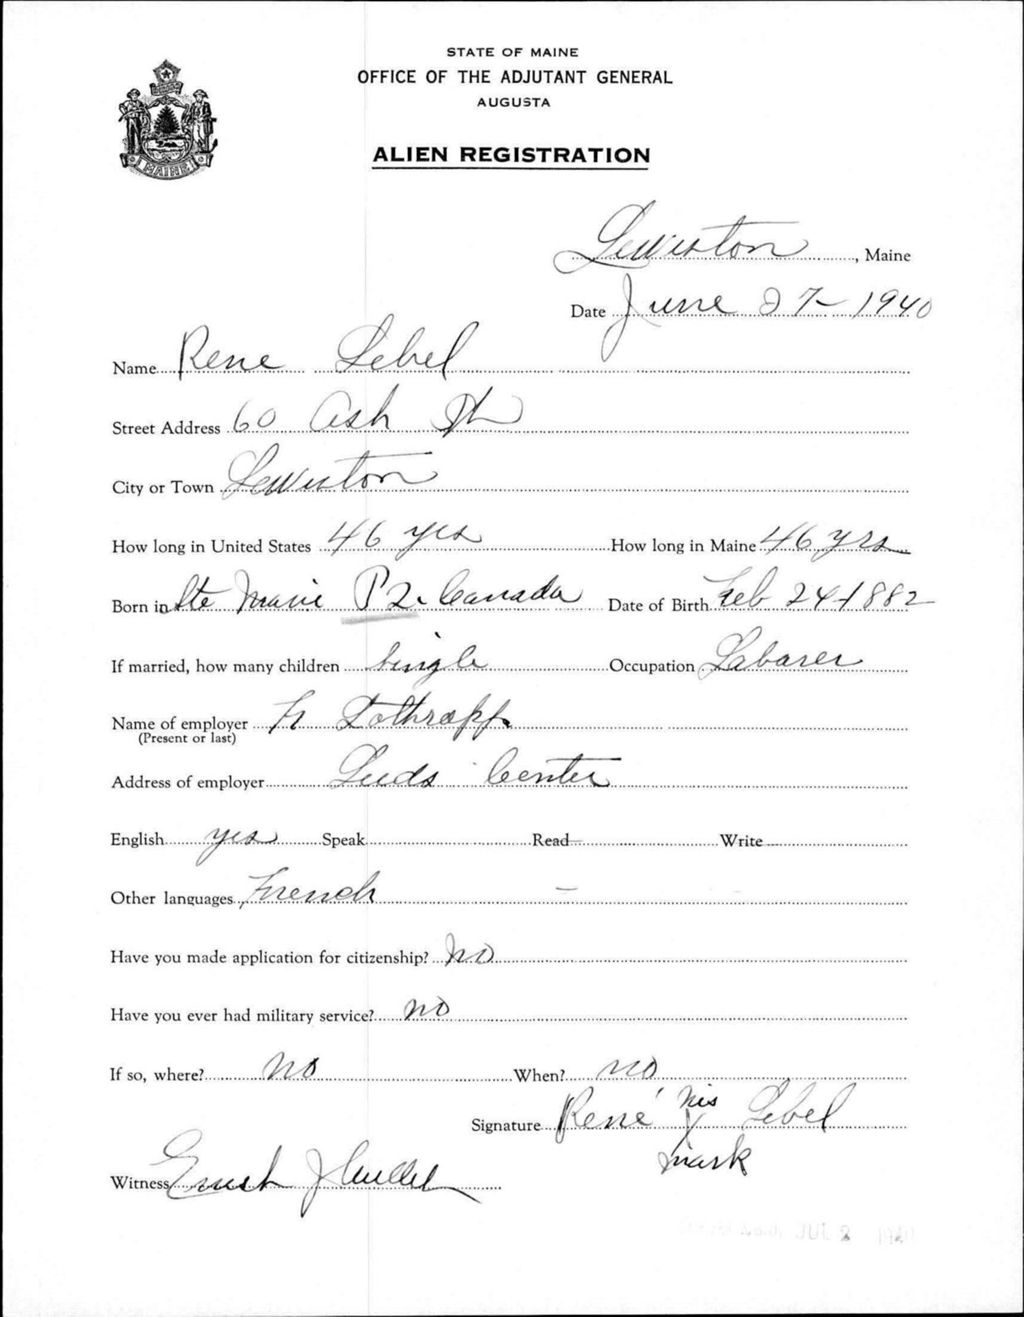 STATE OF MAINE
OFFICE OF THE ADJUTANT GENERAL
AUGUSTA
MAINE
ALIEN REGISTRATION
Lewiston, Maine
Date June 27-1940
Name Rene Lebel
Street Address 60 Ash St
City or Town Lewiston
How long in United States 46 yrs How long in Maine 46 yrs
Born in Ste Marie P2. Canada Date of Birth Feb 24-1882
If married, how many children Single Occupation Labarer
Name of employer Lothropp
(Present or last)
Address of employer Leeds Center
English yes Speak Read Write
Other languages French
Have you made application for citizenship? No
Have you ever had military service? no
If so, where? No When? no
Signature René his X Lebel
mark
Witness
JUL 2 1940